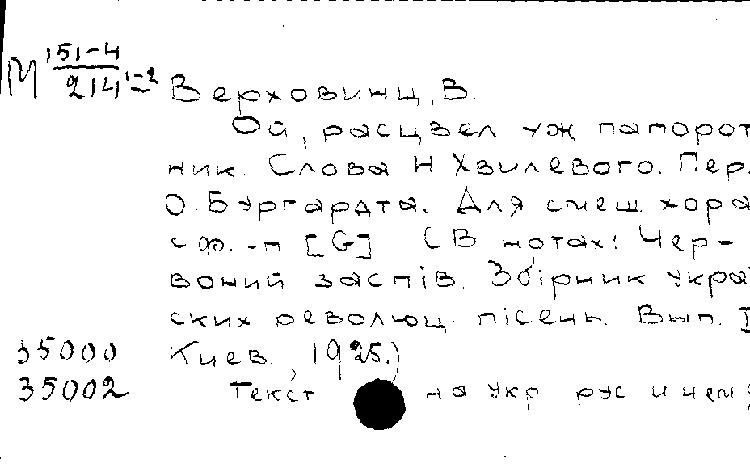 М 151-4/214 1-2
Верховинц, В.
Ой, расцвел уж папорот
ник. Слова Н Хвилевого. Пер.
О. Бургардта. Для смеш. хора
с ф.-п [G] (В нотах: Чер-
воний заспів. Збірник украї
ских революц. пісень. Вып. I
35000 Киев, 1925.)
35002 Текст на укр рус и нем